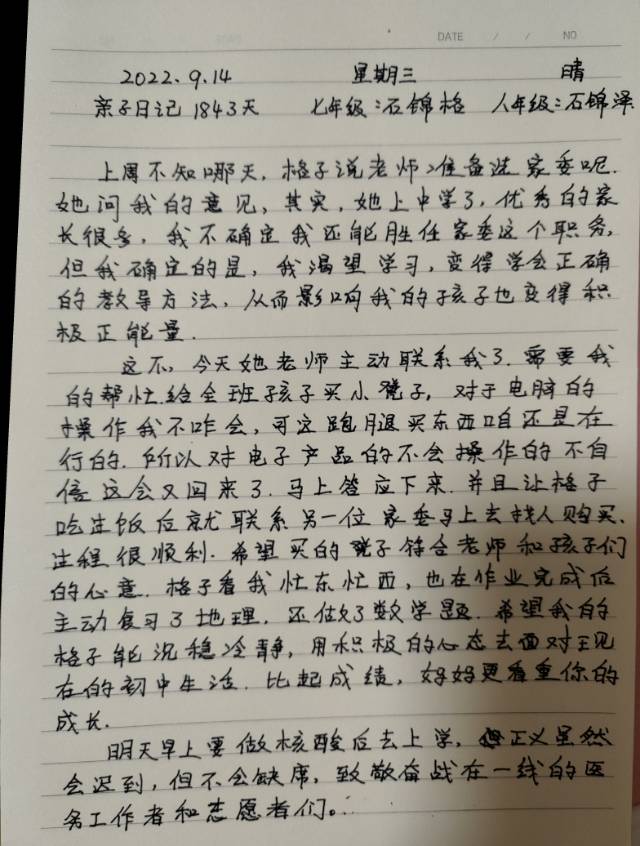 DATE / / NO
2022.9.14 星期三 晴
亲子日记1843天 七年级:石锦格 八年级:石锦泽
上周不知哪天,格子说老师准备选家委呢.
她问我的意见,其实,她上中学了,优秀的家
长很多,我不确定我还能胜任家委这个职务,
但我确定的是,我渴望学习,变得学会正确
的教导方法,从而影响我的孩子也变得积
极正能量.
这不,今天她老师主动联系我了.需要我
的帮忙.给全班孩子买小凳子,对于电脑的
操作我不咋会,可这跑腿买东西咱还是在
行的.所以对电子产品的不会操作的不自
信这会又回来了.马上答应下来.并且让格子
吃过饭后就联系另一位家委马上去找人购买.
过程很顺利.希望买的凳子符合老师和孩子们
的心意.格子看我忙东忙西,也在作业完成后
主动复习了地理.还做了数学题.希望我的
格子能沉稳冷静,用积极的心态去面对现
在的初中生活.比起成绩,妈妈更看重你的
成长.
明天早上要做核酸后去上学,正义虽然
会迟到,但不会缺席,致敬奋战在一线的医
务工作者和志愿者们。..